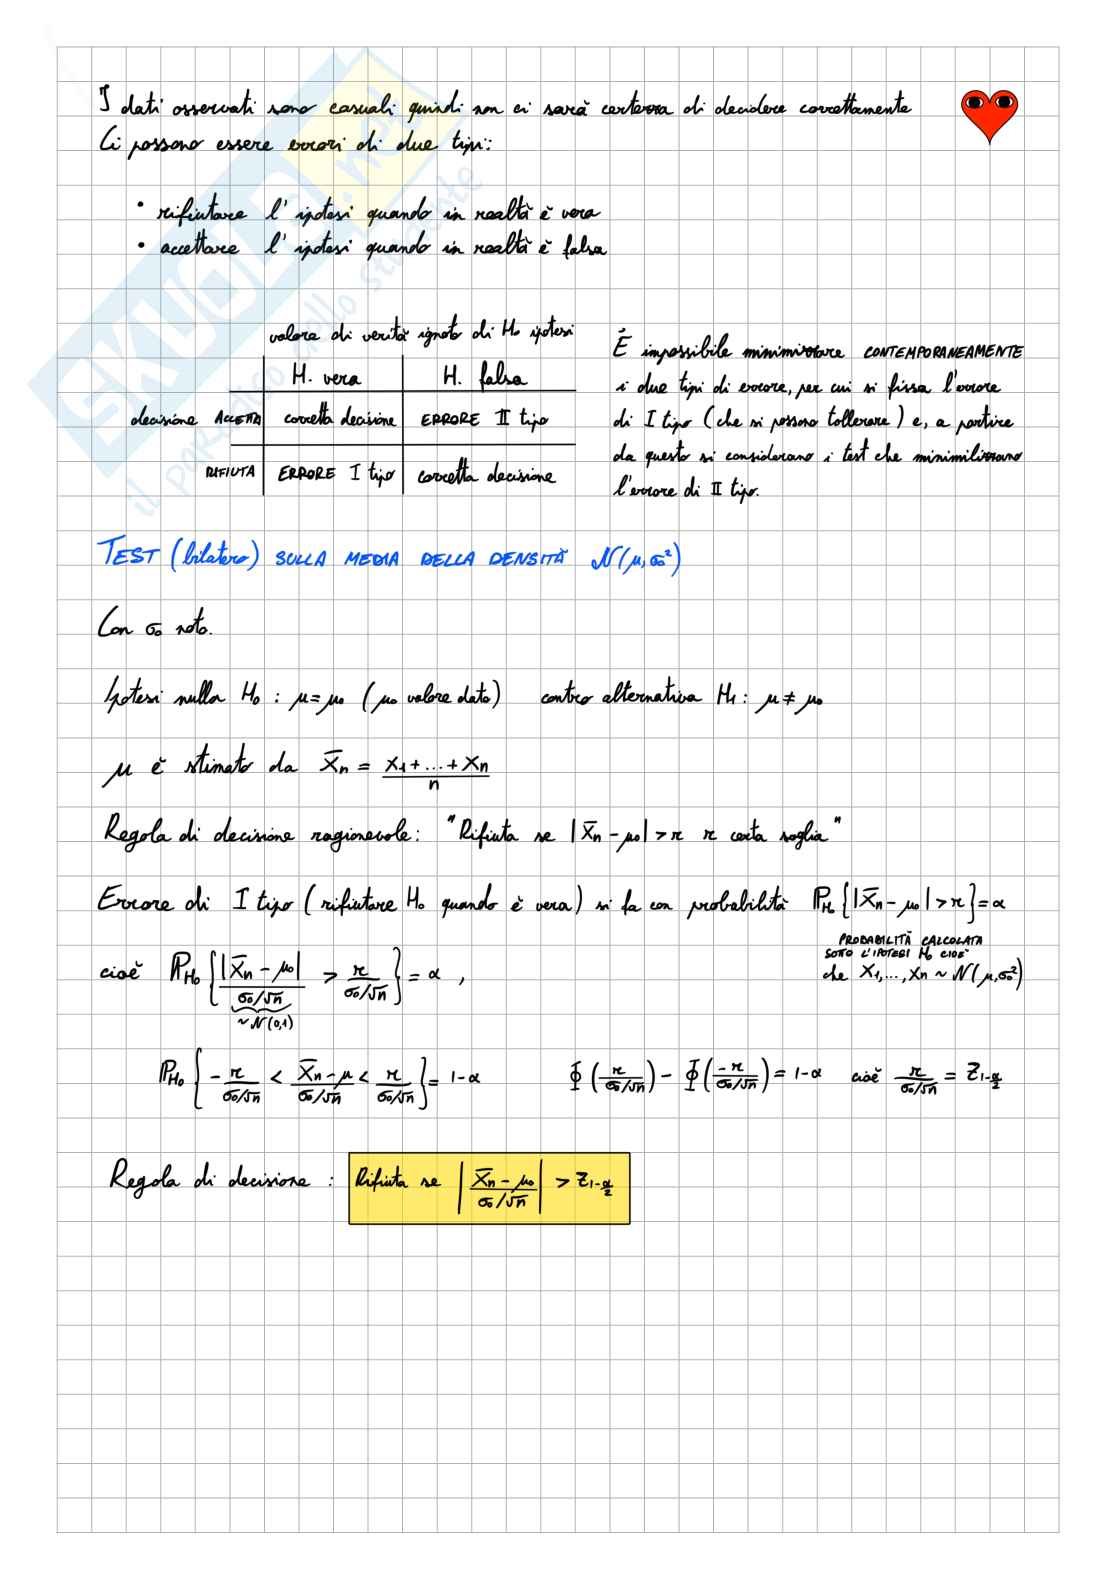 I dati osservati sono casuali quindi non ci sarà certezza di decidere correttamente
Ci possono essere errori di due tipi:
• rifiutare l'ipotesi quando in realtà è vera
• accettare l'ipotesi quando in realtà è falsa
valore di verità ignoto di H₀ ipotesi
H. vera H. falsa
decisione ACCETTA corretta decisione ERRORE II tipo
RIFIUTA ERRORE I tipo corretta decisione
È impossibile minimizzare CONTEMPORANEAMENTE
i due tipi di errore, per cui si fissa l'errore
di I tipo (che si possono tollerare) e, a partire
da questo si considerano i test che minimilizzano
l'errore di II tipo.
TEST (bilatero) SULLA MEDIA DELLA DENSITÀ N(μ,σ₀²)
Con σ₀ noto.
Ipotesi nulla H₀ : μ=μ₀ (μ₀ valore dato) contro alternativa H₁: μ ≠ μ₀
μ è stimato da X̄n = (X₁+...+Xn)/n
Regola di decisione ragionevole: "Rifiuta se |X̄n - μ₀| > r r certa soglia"
Errore di I tipo (rifiutare H₀ quando è vera) si fa con probabilità ℙH₀{|X̄n - μ₀| > r} = α
PROBABILITÀ CALCOLATA
SOTTO L'IPOTESI H₀ CIOÈ
che X₁,...,Xn ~ N(μ,σ₀²)
cioè ℙH₀{|X̄n - μ₀|/(σ₀/√n) > r/(σ₀/√n)} = α ,
~N(0,1)
ℙH₀{-r/(σ₀/√n) < (X̄n - μ)/(σ₀/√n) < r/(σ₀/√n)} = 1-α Φ(r/(σ₀/√n)) - Φ(-r/(σ₀/√n)) = 1-α cioè r/(σ₀/√n) = Z1-α/2
Regola di decisione : Rifiuta se |(X̄n - μ₀)/(σ₀/√n)| > Z1-α/2
SKUOLA.net
il paradiso dello studente